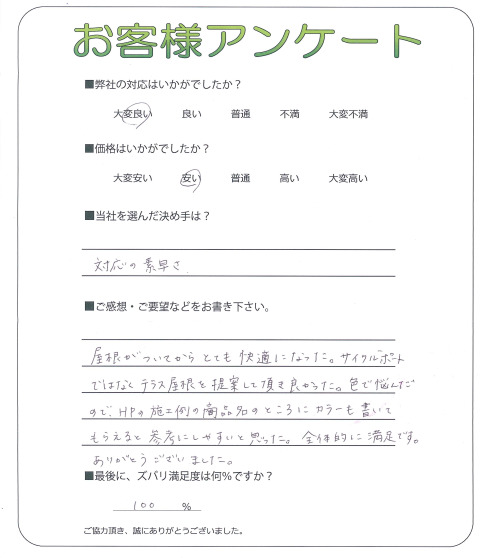 お客様アンケート
■弊社の対応はいかがでしたか？
大変良い 良い 普通 不満 大変不満
■価格はいかがでしたか？
大変安い 安い 普通 高い 大変高い
■当社を選んだ決め手は？
対応の素早さ
■ご感想・ご要望などをお書き下さい。
屋根がついてからとても快適になった。サイクルポート
ではなくテラス屋根を提案して頂き良かった。色で悩んだ
ので、HPの施工例の商品名のところにカラーも書いて
もらえると参考にしやすいと思った。全体的に満足です。
ありがとうございました。
■最後に、ズバリ満足度は何%ですか？
100 %
ご協力頂き、誠にありがとうございました。